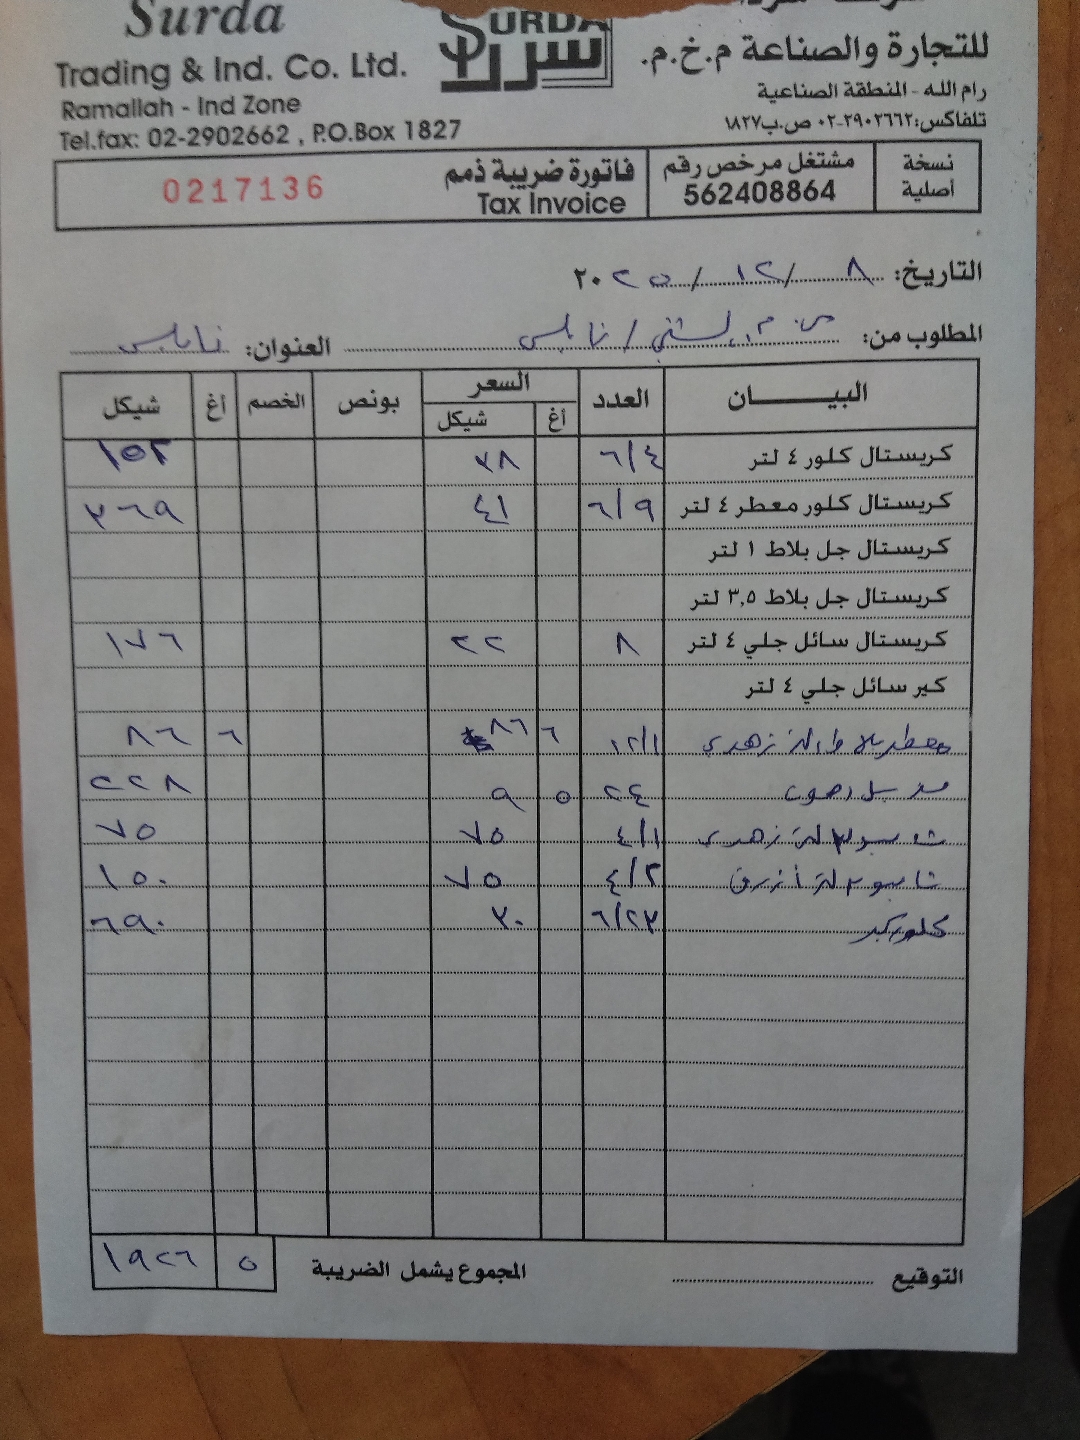 Surda
SURDA
سردا
Trading & Ind. Co. Ltd.
للتجارة والصناعة م.خ.م.
Ramallah - Ind Zone
رام الله - المنطقة الصناعية
Tel.fax: 02-2902662 , P.O.Box 1827
تلفاكس: ٢٩٠٢٦٦٢-٠٢ ص.ب ١٨٢٧
نسخة أصلية
مشتغل مرخص رقم
562408864
فاتورة ضريبة ذمم
Tax Invoice
0217136
التاريخ: ٨ / ١٢ / ٢٠٢٥
المطلوب من: / نابلس العنوان: نابلس
البيـــــــان العدد السعر بونص الخصم أغ شيكل
أغ شيكل
كريستال كلور ٤ لتر ٦/٤ ٣٨ ١٥٢
كريستال كلور معطر ٤ لتر ٦/٩ ٤١ ٣٦٩
كريستال جل بلاط ١ لتر
كريستال جل بلاط ٣,٥ لتر
كريستال سائل جلي ٤ لتر ٨ ٢٢ ١٧٦
كير سائل جلي ٤ لتر
معطر بلاط زهري ١٢/١ ٦ ٨٦ ٦ ٨٦
٢٤ ٥ ٩ ٢٢٨
شامبو ٣ لتر زهري ٤/١ ٧٥ ٧٥
شامبو ٣ لتر أزرق ٤/٢ ٧٥ ١٥٠
كلور كير ٦/٢٣ ٣٠ ٦٩٠
التوقيع المجموع يشمل الضريبة ٥ ١٩٢٦